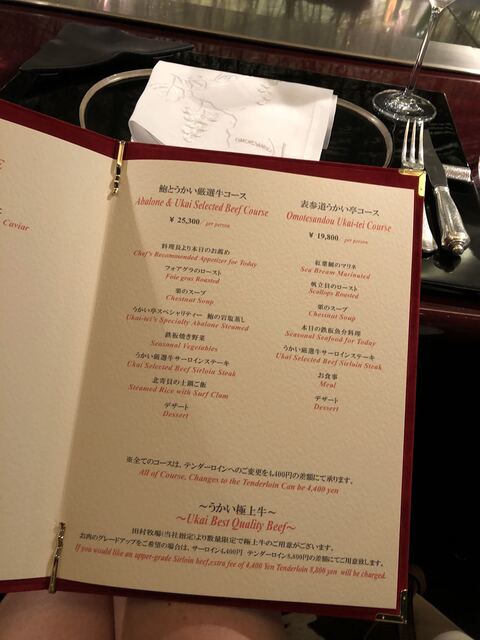 Caviar
鮑とうかい厳選牛コース
Abalone & Ukai Selected Beef Course
¥ 25,300 per person
料理長より本日のお薦め
Chef's Recommended Appetizer for Today
フォアグラのロースト
Foie gras Roasted
栗のスープ
Chestnut Soup
うかい亭スペシャリティー 鮑の岩塩蒸し
Ukai-tei's Specialty Abalone Steamed
鉄板焼き野菜
Seasonal Vegetables
うかい厳選牛サーロインステーキ
Ukai Selected Beef Sirloin Steak
北寄貝の土鍋ご飯
Steamed Rice with Surf Clam
デザート
Dessert
表参道うかい亭コース
Omotesandou Ukai-tei Course
¥ 19,800 per person
紅葉鯛のマリネ
Sea Bream Marinated
帆立貝のロースト
Scallops Roasted
栗のスープ
Chestnut Soup
本日の鉄板魚介料理
Seasonal Seafood for Today
うかい厳選牛サーロインステーキ
Ukai Selected Beef Sirloin Steak
お食事
Meal
デザート
Dessert
※全てのコースは、テンダーロインへのご変更を4,400円の差額にて承ります。
All of Course, Changes to the Tenderloin Can be 4,400 yen
～うかい極上牛～
～Ukai Best Quality Beef～
田村牧場(当社指定)より数量限定で極上牛のご用意がございます。
お肉のグレードアップをご希望の場合は、サーロイン4,400円 テンダーロイン8,800円の差額にてご用意致します。
If you would like an upper-grade Sirloin beef,extra fee of 4,400 Yen Tenderloin 8,800 yen will be charged.